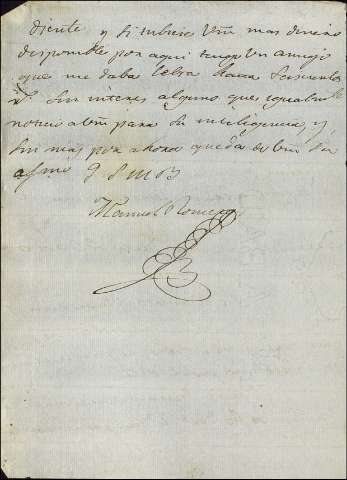 diente, y si tubiere Vm mas dinero
desponible por aqui tengo Un amigo
que me daba letra
Sin interes alguno que
noticio a Vm para su inteligencia, y
Sin mas por ahora queda de Vm su
afmo Q S M B
Manuel Romero